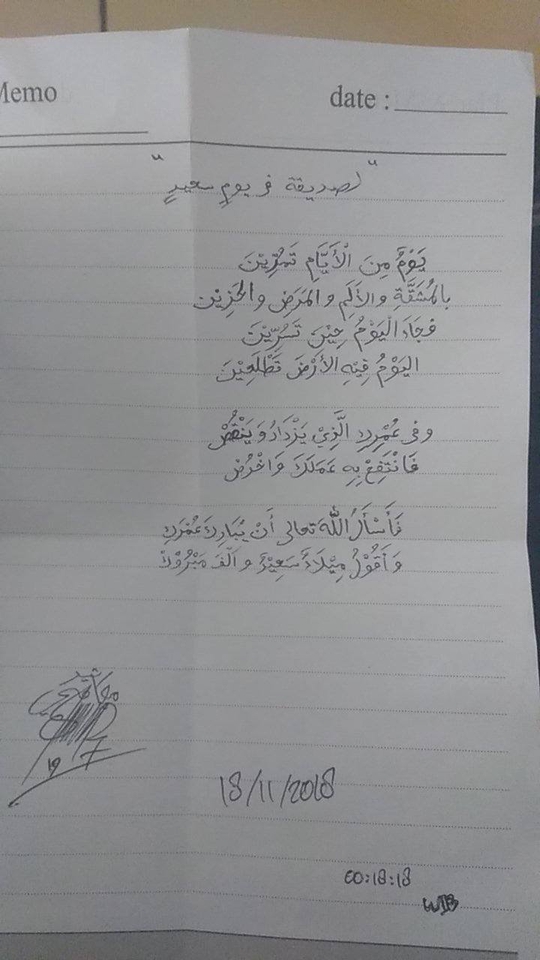 Memo
date :
"لصديقة في يوم سعيدٍ"
يَوْمٌ مِنَ الْأَيَّامِ تَمُرِّيْنَ
بالمُشَقَّةِ والأَلَمِ والمَرَضِ والحَزِيْن
فجَاءَ الْيَوْمُ حِيْنَ تَسُرِّيْنَ
اليَوْمُ فِيْهِ الأَرْضَ تَطْلَعِيْنَ
وفي عُمْرِكِ الَّذِيْ يَزْدَادُ وَيَنْقُصُ
فَانْتَفِعْ بِهِ عَمَلَكَ وَاحْرُصْ
فَأَسْأَلُ اللهَ تعالى أَنْ يُبَارِكَ عُمْرَكِ
وَأَقُوْلُ مِيْلَادٌ سَعِيْدٌ وَأَلْفُ مَبْرُوْك
19
7
18/11/2018
00:18:18
WIB